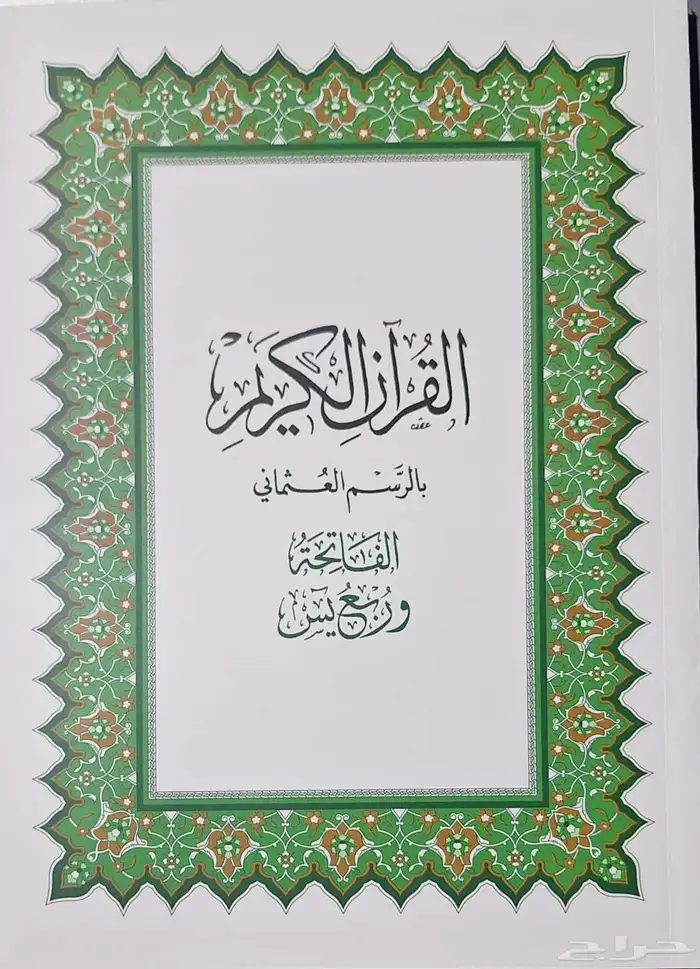 القُرآن الكَرِيْم
بالرَّسْم العُثماني
الفَاتِحَةُ
وَرُبعُ يَس
حراج